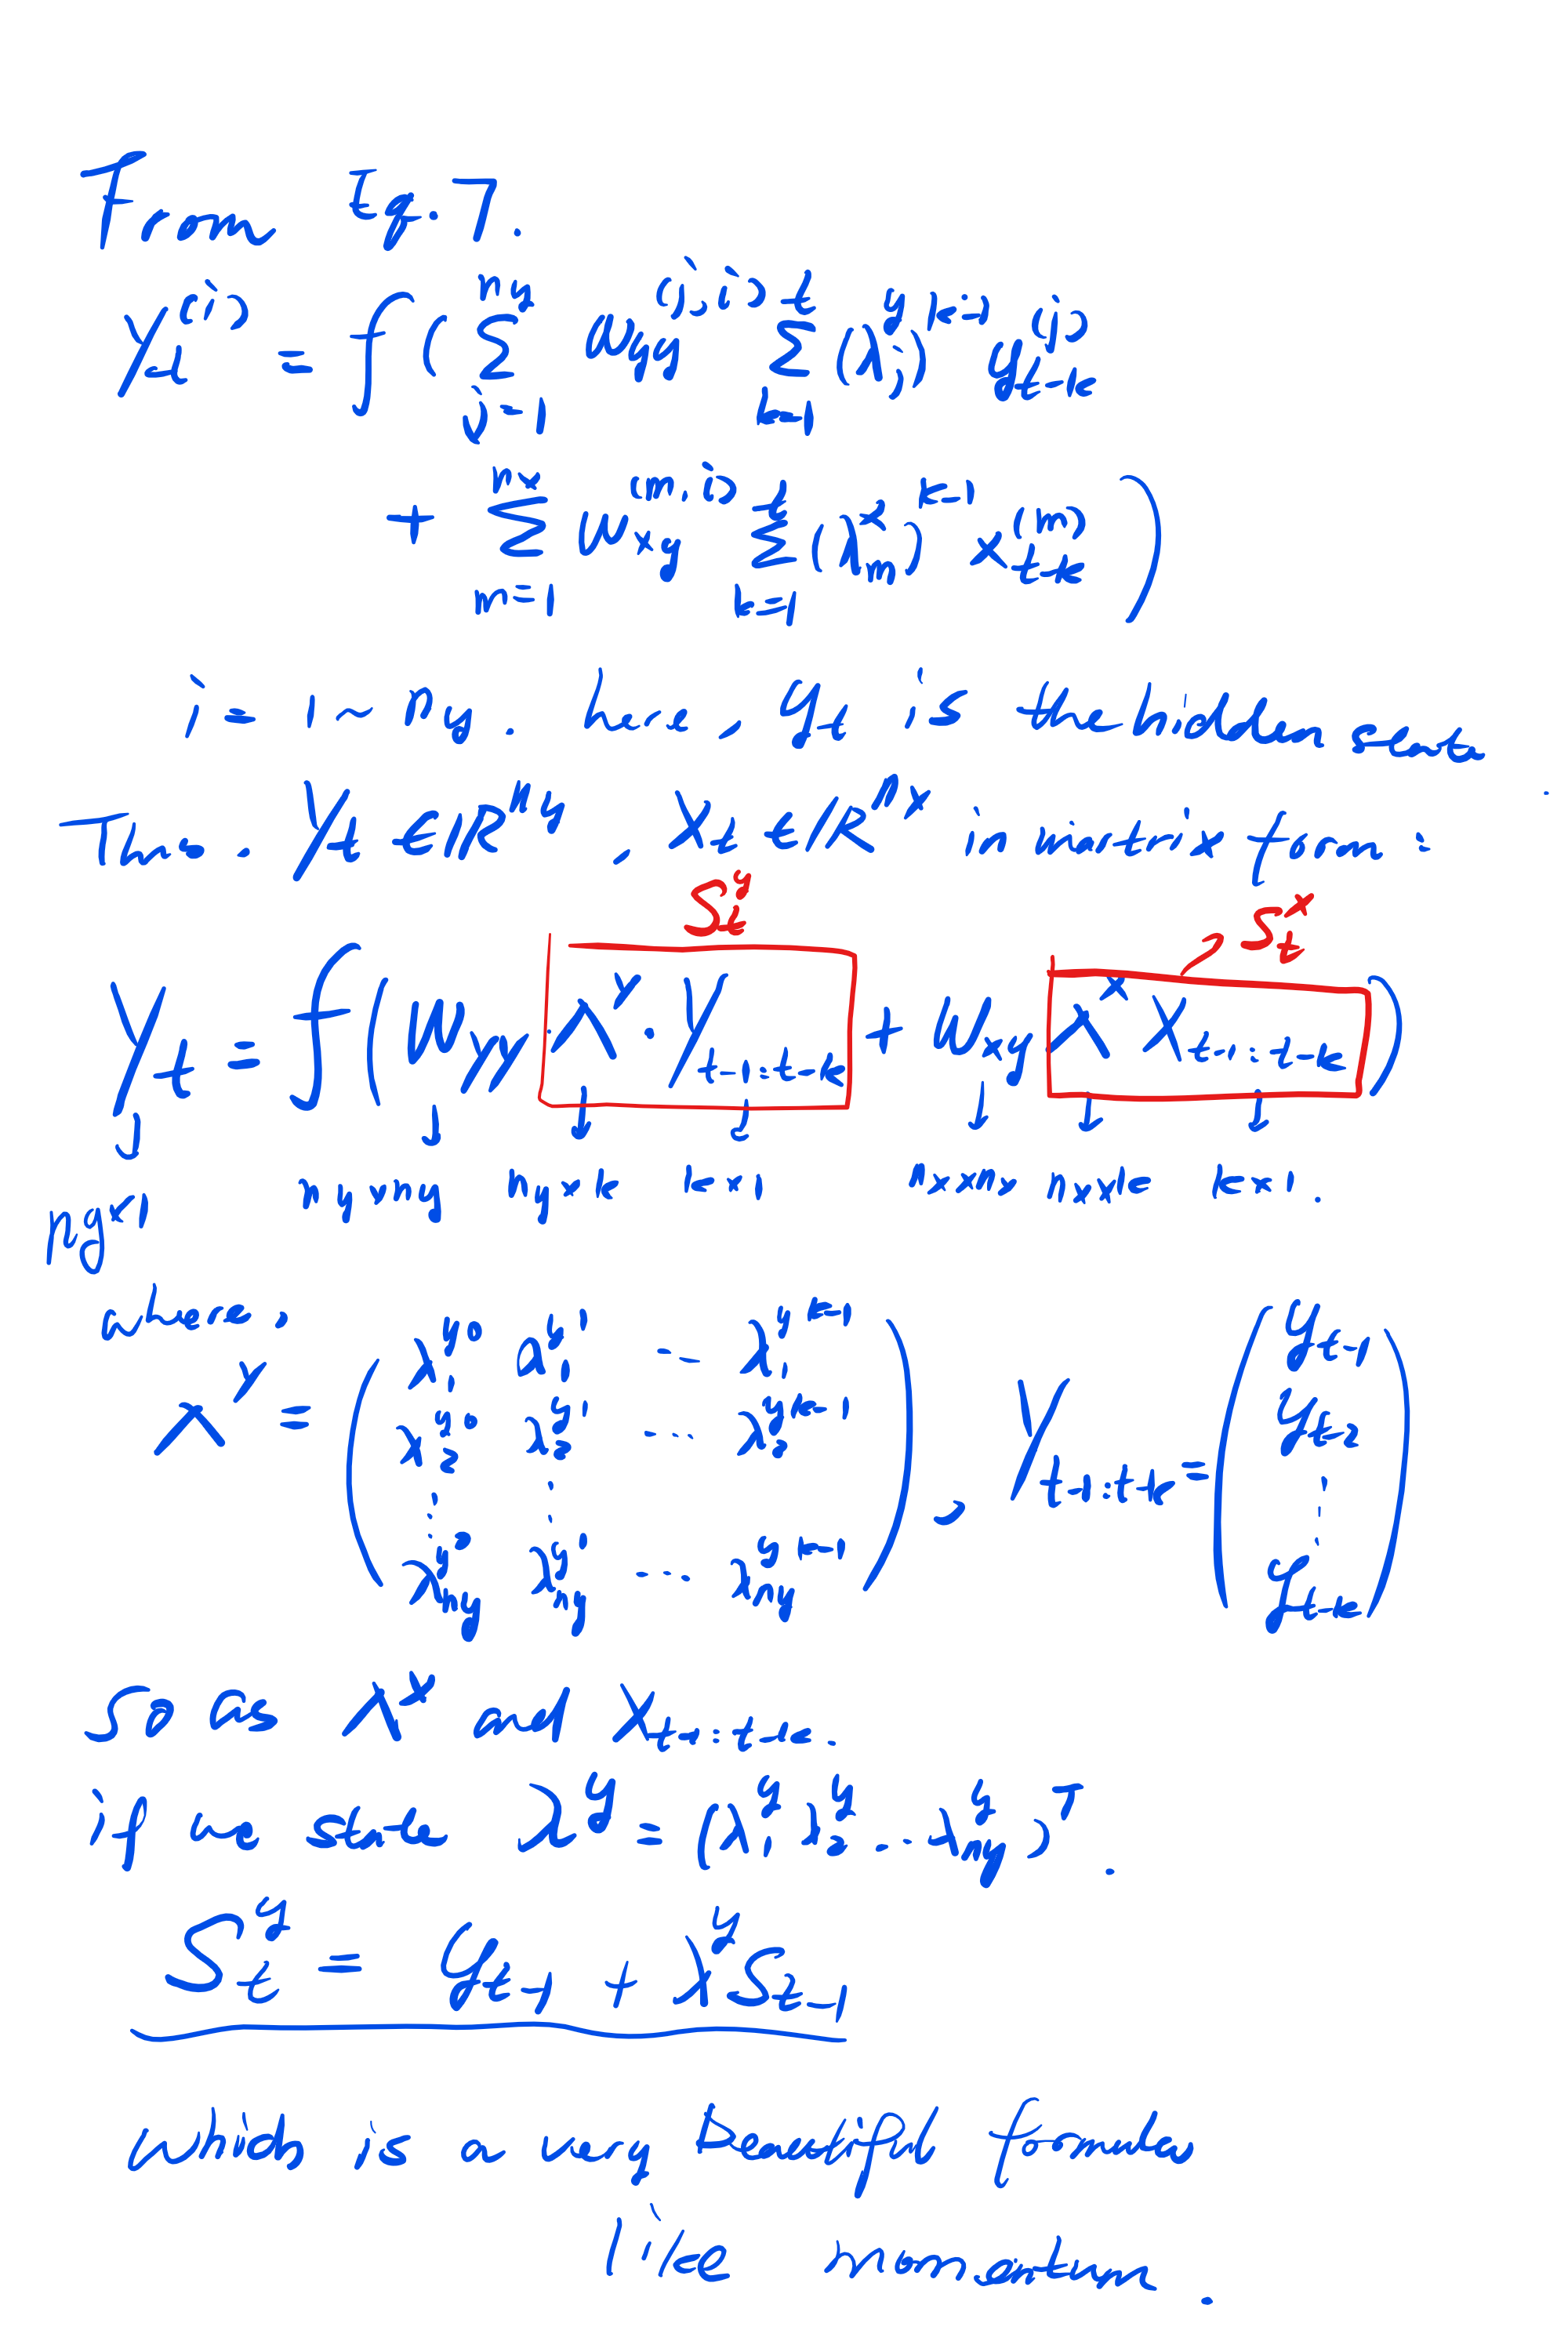 From Eq.7.
Y_t^{(i)} = f( \sum_{j=1}^{n_y} w_{yy}^{(j,i)} \sum_{k=1}^{t} (λ_j^y)^{k-1} y_{t-k}^{(j)}
+ \sum_{m=1}^{n_x} w_{xy}^{(m,i)} \sum_{k=1}^{t} (λ_m^x)^{k-1} x_{t-k}^{(m)} )
i = 1 ~ n_y. here, y_t is the hidden state
Thus. Y_t ∈ R^{n_y}, X_t ∈ R^{n_x} in matrix form:
S_t^y S_t^x
Y_t = f( W_{yy} Λ^y · Y_{t-1:t-k} + W_{xy} Λ^x X_{t-1:t-k} )
n_y×1 n_y×n_y n_y×k k×1 n_x×n_x n_x×k k×1.
where,
Λ^y = ( λ_1^{y 0} λ_1^{y 1} ... λ_1^{y k-1} , Y_{t-1:t-k} = ( y_{t-1}
λ_2^{y 0} λ_2^{y 1} ... λ_2^{y k-1} y_{t-2}
⋮ ⋮ ⋮
λ_{n_y}^{y 0} λ_{n_y}^{y 1} ... λ_{n_y}^{y k-1} ) y_{t-k} )
So as Λ^x and X_{t-1:t-k}.
if we state λ^y = (λ_1^y λ_2^y ... λ_{n_y}^y)^T.
S_t^y = y_{t-1} + λ^y S_{t-1}
which is a very beautiful formula
like momentum.